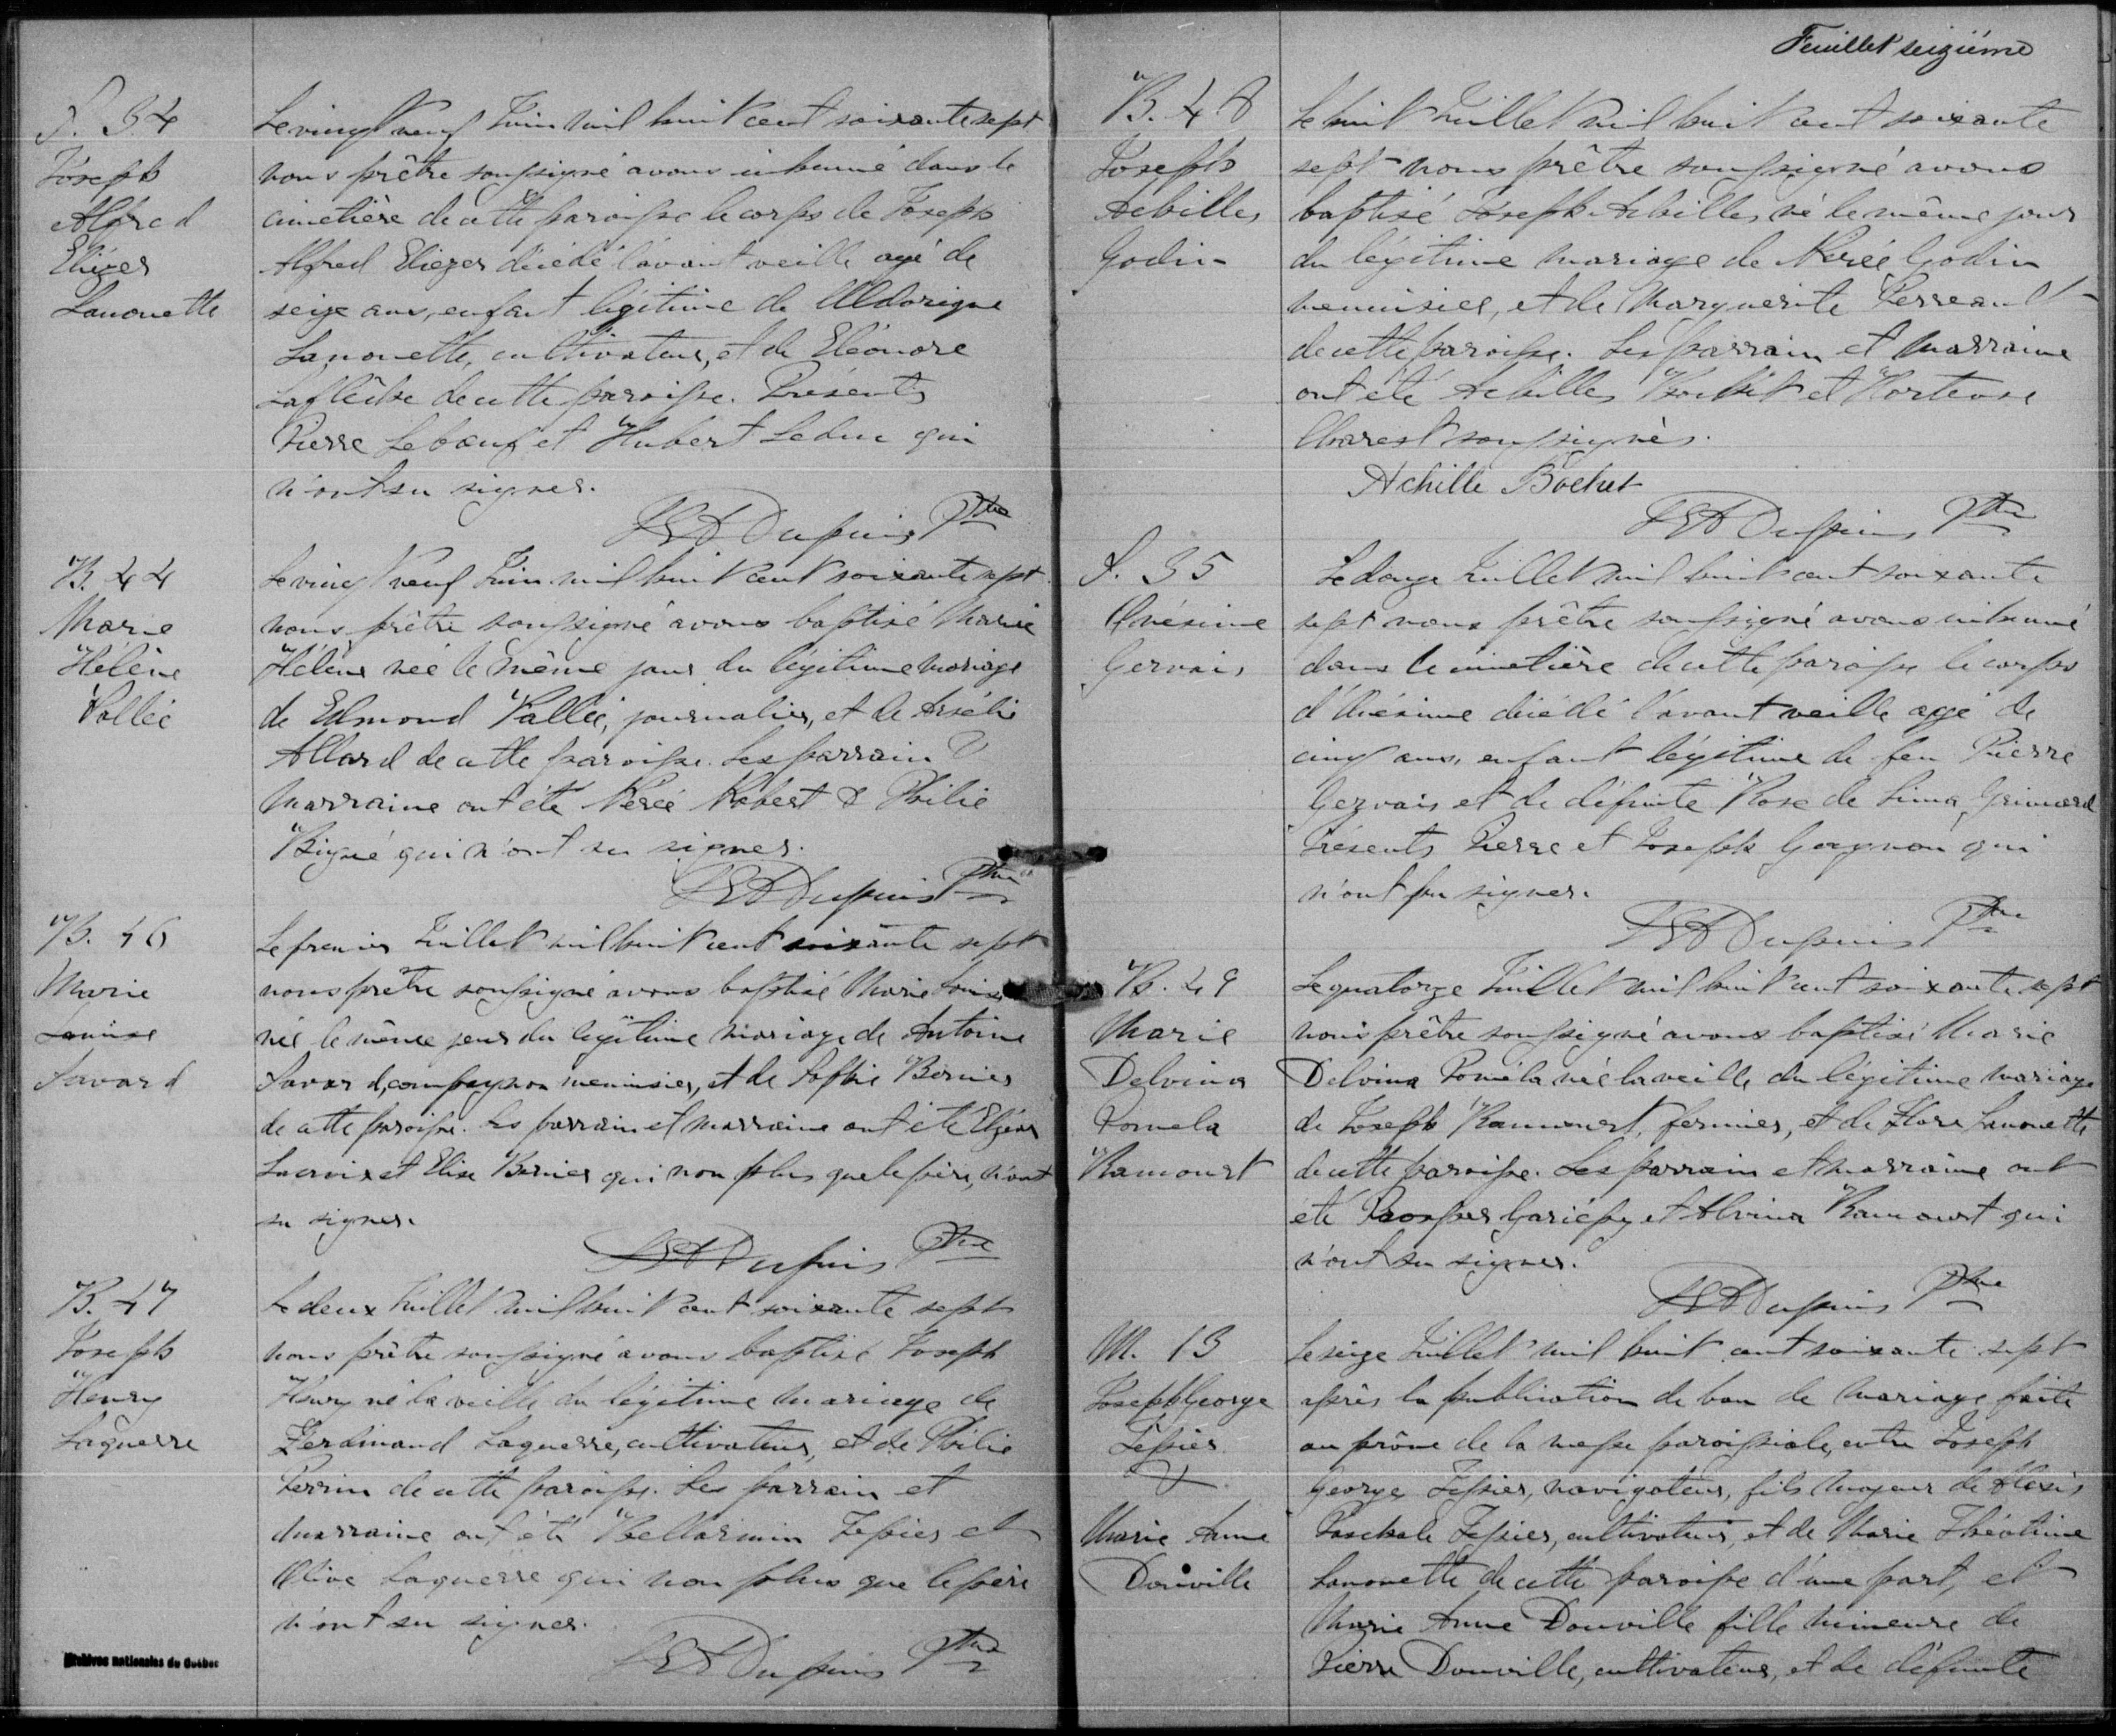 S. 34
Joseph
Alfred
Eliezer
Lanouette
Le vingt neuf Juin mil huit cent soixante sept
nous prêtre soussigné avons inhumé dans le
cimetière de cette paroisse le corps de Joseph
Alfred Eliezer décédé l'avant veille agé de
seize ans, enfant légitime de Uldorique
Lanouette, cultivateur, et de Eléonore
Laflèche de cette paroisse. Présents
Pierre Leboeuf et Hubert Leduc qui
n'ont su signer.
Dupuis Ptre
B. 44
Marie
Hélène
Vallée
Le vingt neuf Juin mil huit cent soixante sept
nous prêtre soussigné avons baptisé Marie
Hélène née le même jour du légitime mariage
de Edmond Vallée, journalier, et de Arsélie
Allard de cette paroisse. Les parrain &
marraine ont été Nérée Robert & Philie
Bigué qui n'ont su signer.
Dupuis Ptre
B. 46
Marie
Louise
Savard
Le premier Juillet mil huit cent soixante sept
nous prêtre soussigné avons baptisé Marie Louise
née le même jour du légitime mariage de Antoine
Savard, compagnon menuisier, et de Sophie Bernier
de cette paroisse. Les parrain et marraine ont été Elzéar
Lacroix et Elise Bernier qui non plus que le père, n'ont
su signer.
Dupuis Ptre
B. 47
Joseph
Henry
Laguerre
Le deux Juillet mil huit cent soixante sept
nous prêtre soussigné avons baptisé Joseph
Henry né la veille du légitime mariage de
Ferdinand Laguerre, cultivateur, et de Philie
Perrin de cette paroisse. Les parrain et
marraine ont été Bellarmin Tessier et
Olive Laguerre qui non plus que le père
n'ont su signer.
Dupuis Ptre
Archives nationales du Québec
Feuillet seizième
B. 48
Joseph
Achilles
Godin
Le huit Juillet mil huit cent soixante
sept nous prêtre soussigné avons
baptisé Joseph Achilles né le même jour
du légitime mariage de Nérée Godin
menuisier, et de Marguerite Perreault
de cette paroisse. Les parrain et marraine
ont été Achilles et Hortense
Marest soussignés.
Achille Bochet
Dupuis Ptre
S. 35
Onésime
Gervais
Le douze Juillet mil huit cent soixante
sept nous prêtre soussigné avons inhumé
dans le cimetière de cette paroisse le corps
d'Onésime décédé l'avant veille agé de
cinq ans, enfant légitime de feu Pierre
Gervais et de défunte Rose de Lima Grimard
Présents Pierre et Joseph Gagnon qui
n'ont pu signer.
Dupuis Ptre
B. 49
Marie
Delvina
Pomela
Ramount
Le quatorze Juillet mil huit cent soixante sept
nous prêtre soussigné avons baptisé Marie
Delvina Poméla née la veille du légitime mariage
de Joseph Ramount, fermier, et de Flore Lanouette
de cette paroisse. Les parrain et marraine ont
été Prosper Gariépy et Alvina Ramount qui
n'ont su signer.
Dupuis Ptre
M. 13
Joseph George
Tessier
&
Marie Anne
Douville
Le seize Juillet mil huit cent soixante sept
après la publication de ban de mariage faite
au prône de la messe paroissiale, entre Joseph
George Tessier, navigateur, fils majeur de Alexis
Paschale Tessier, cultivateur, et de Marie Théotime
Lanouette de cette paroisse d'une part, et
Marie Anne Douville fille mineure de
Pierre Douville, cultivateur, et de défunte